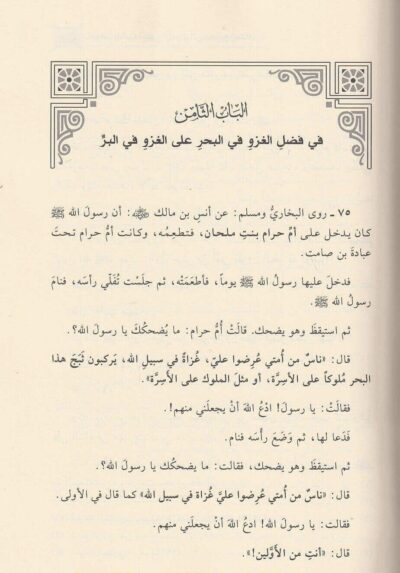 البَابُ الثَّامِنُ
في فضلِ الغزوِ في البحرِ على الغزوِ في البرِّ
٧٥ ـ روى البخاريُّ ومسلم: عن أنسِ بن مالك ﵁: أن رسولَ الله ﷺ
كان يدخل على أمِّ حرام بنتِ ملحان، فتطعِمُه، وكانت أمُّ حرام تحتَ
عبادةَ بن صامت.
فدخلَ عليها رسولُ الله ﷺ يوماً، فأطعَمَتْه، ثم جلَسْت تُفَلّي رأسَه، فنامَ
رسولُ الله ﷺ.
ثم استيقظَ وهو يضحك. قالَتْ أُم حرام: ما يُضحكُكَ يا رسولَ الله؟.
قال: «ناسٌ من أُمتي عُرِضوا عليّ، غُزاةً في سبيلِ الله، يَركبون ثَبَجَ هذا
البحر مُلوكاً على الأسِرَّة، أو مثلَ الملوك على الأسِرَّة».
فقالَتْ: يا رسول! ادعُ اللهَ أنْ يجعلَني منهم!.
فَدَعا لها، ثم وَضَعَ رأْسَه فنام.
ثم استيقظَ وهو يضحك، فقالت: ما يضحكك يا رسولَ الله؟.
قال: «ناسٌ من أُمتي عُرِضوا عليَّ غُزاة في سبيل الله» كما قال في الأولى.
فقالت: يا رسولَ الله! ادعُ اللهَ أنْ يجعلَني منهم.
قال: «أنتِ من الأوَّلين!».